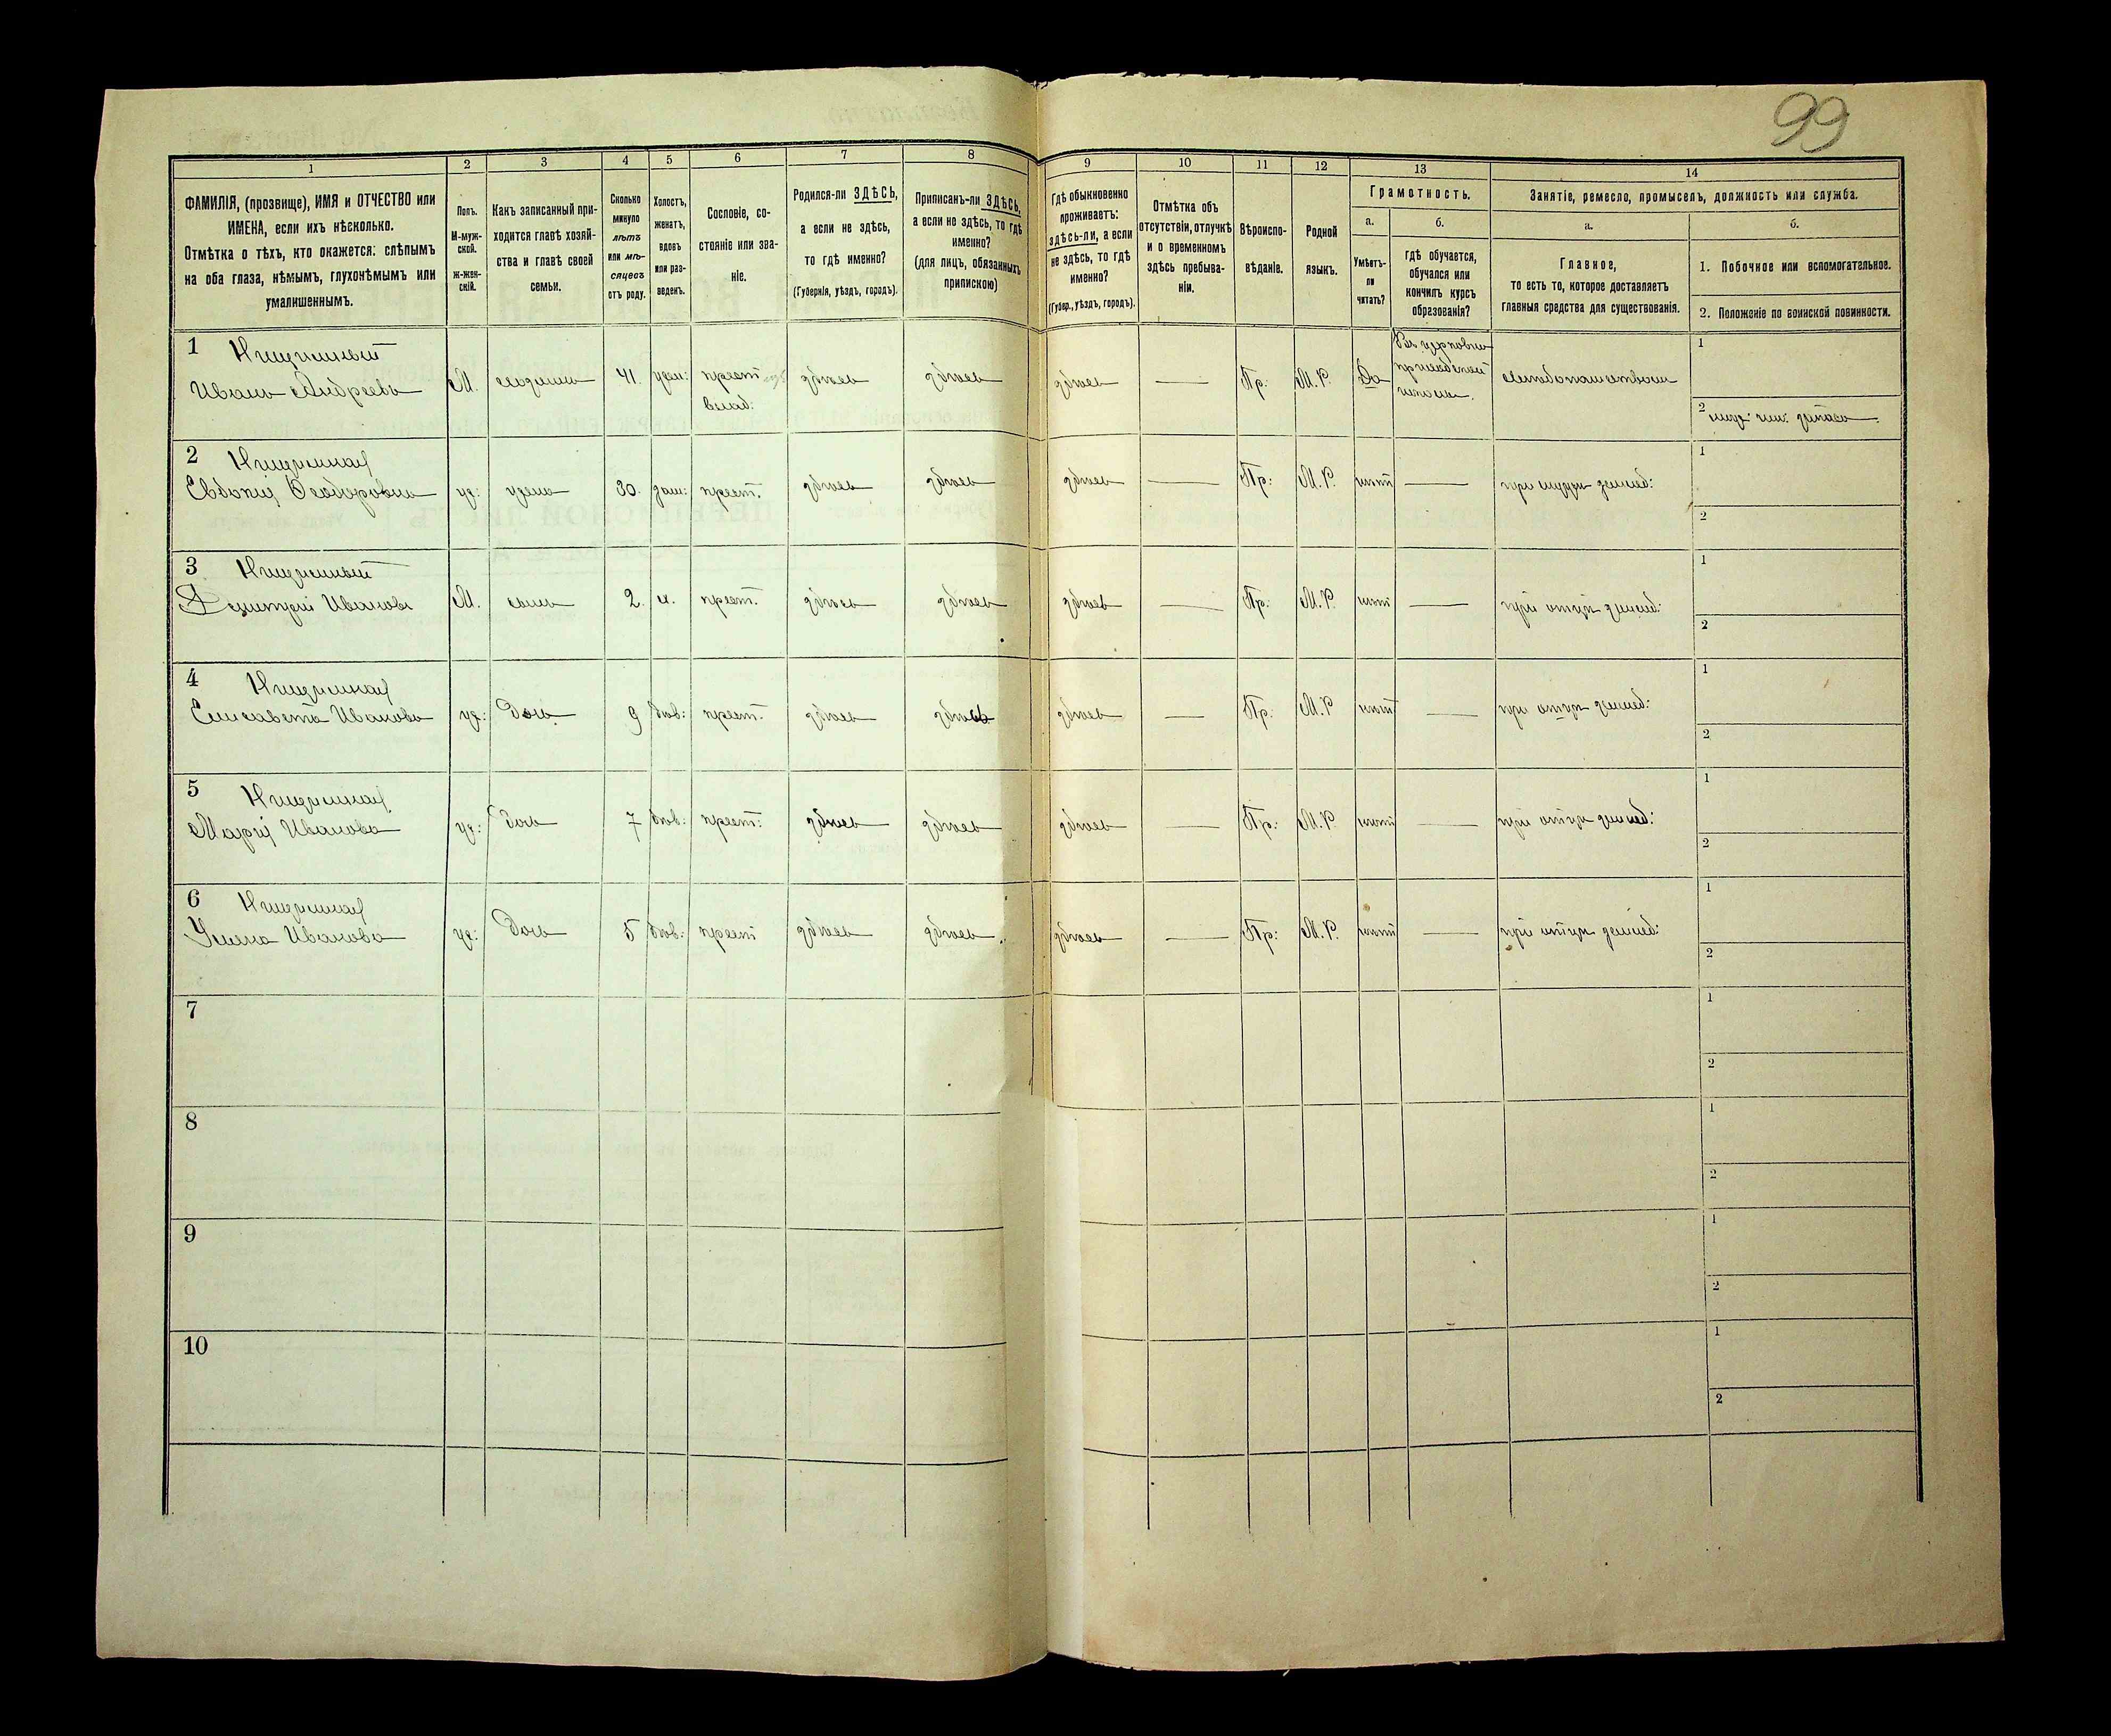 99
1
2
3
4
5
6
7
8
9
10
11
12
13
14
ФАМИЛІЯ, (прозвище), ИМЯ и ОТЧЕСТВО или
ИМЕНА, если ихъ нѣсколько.
Отмѣтка о тѣхъ, кто окажется: слѣпымъ
на оба глаза, нѣмымъ, глухонѣмымъ или
умалишеннымъ.
Полъ.
М-муж-
ской.
ж-жен-
скій.
Какъ записанный при-
ходится главѣ хозяй-
ства и главѣ своей
семьи.
Сколько
минуло
лѣтъ
или мѣ-
сяцевъ
отъ роду.
Холостъ,
женатъ,
вдовъ
или раз-
веденъ.
Сословіе, со-
стояніе или зва-
ніе.
Родился-ли ЗДѢСЬ,
а если не здѣсь,
то гдѣ именно?
(Губернія, уѣздъ, городъ).
Приписанъ-ли ЗДѢСЬ,
а если не здѣсь, то гдѣ
именно?
(для лицъ, обязанныхъ
припискою)
Гдѣ обыкновенно
проживаетъ:
здѣсь-ли, а если
не здѣсь, то гдѣ
именно?
(Губер., уѣздъ, городъ).
Отмѣтка объ
отсутствіи, отлучкѣ
и о временномъ
здѣсь пребыва-
ніи.
Вѣроиспо-
вѣданіе.
Родной
языкъ.
Грамотность.
а.
Умѣетъ-
ли
читать?
б.
гдѣ обучается,
обучался или
кончилъ курсъ
образованія?
Занятіе, ремесло, промыселъ, должность или служба.
а.
Главное,
то есть то, которое доставляетъ
главныя средства для существованія.
б.
1. Побочное или вспомогательное.
2. Положеніе по воинской повинности.
1
Иванъ Андреевъ М. 41. здѣсь здѣсь здѣсь Пр: М.Р. Да
школѣ.
1
2
2
Ѳеодоровна ж: жена 30. крест. здѣсь здѣсь здѣсь Пр: М.Р. нѣтъ
1
2
3
Дмитрій Ивановъ М. сынъ 2. х. крест. здѣсь здѣсь здѣсь Пр: М.Р. нѣтъ при отцѣ землед:
1
2
4
Елисавета Иванова ж: дочь 9 дѣв: крест. здѣсь здѣсь здѣсь Пр: М.Р. нѣтъ при отцѣ землед:
1
2
5
Марія Иванова ж: дочь 7 дѣв: крест: здѣсь здѣсь здѣсь Пр: М.Р. нѣтъ при отцѣ землед:
1
2
6
Иванова ж: дочь 5 дѣв: крест здѣсь здѣсь здѣсь Пр: М.Р. нѣтъ при отцѣ землед:
1
2
7
1
2
8
1
2
9
1
2
10
1
2